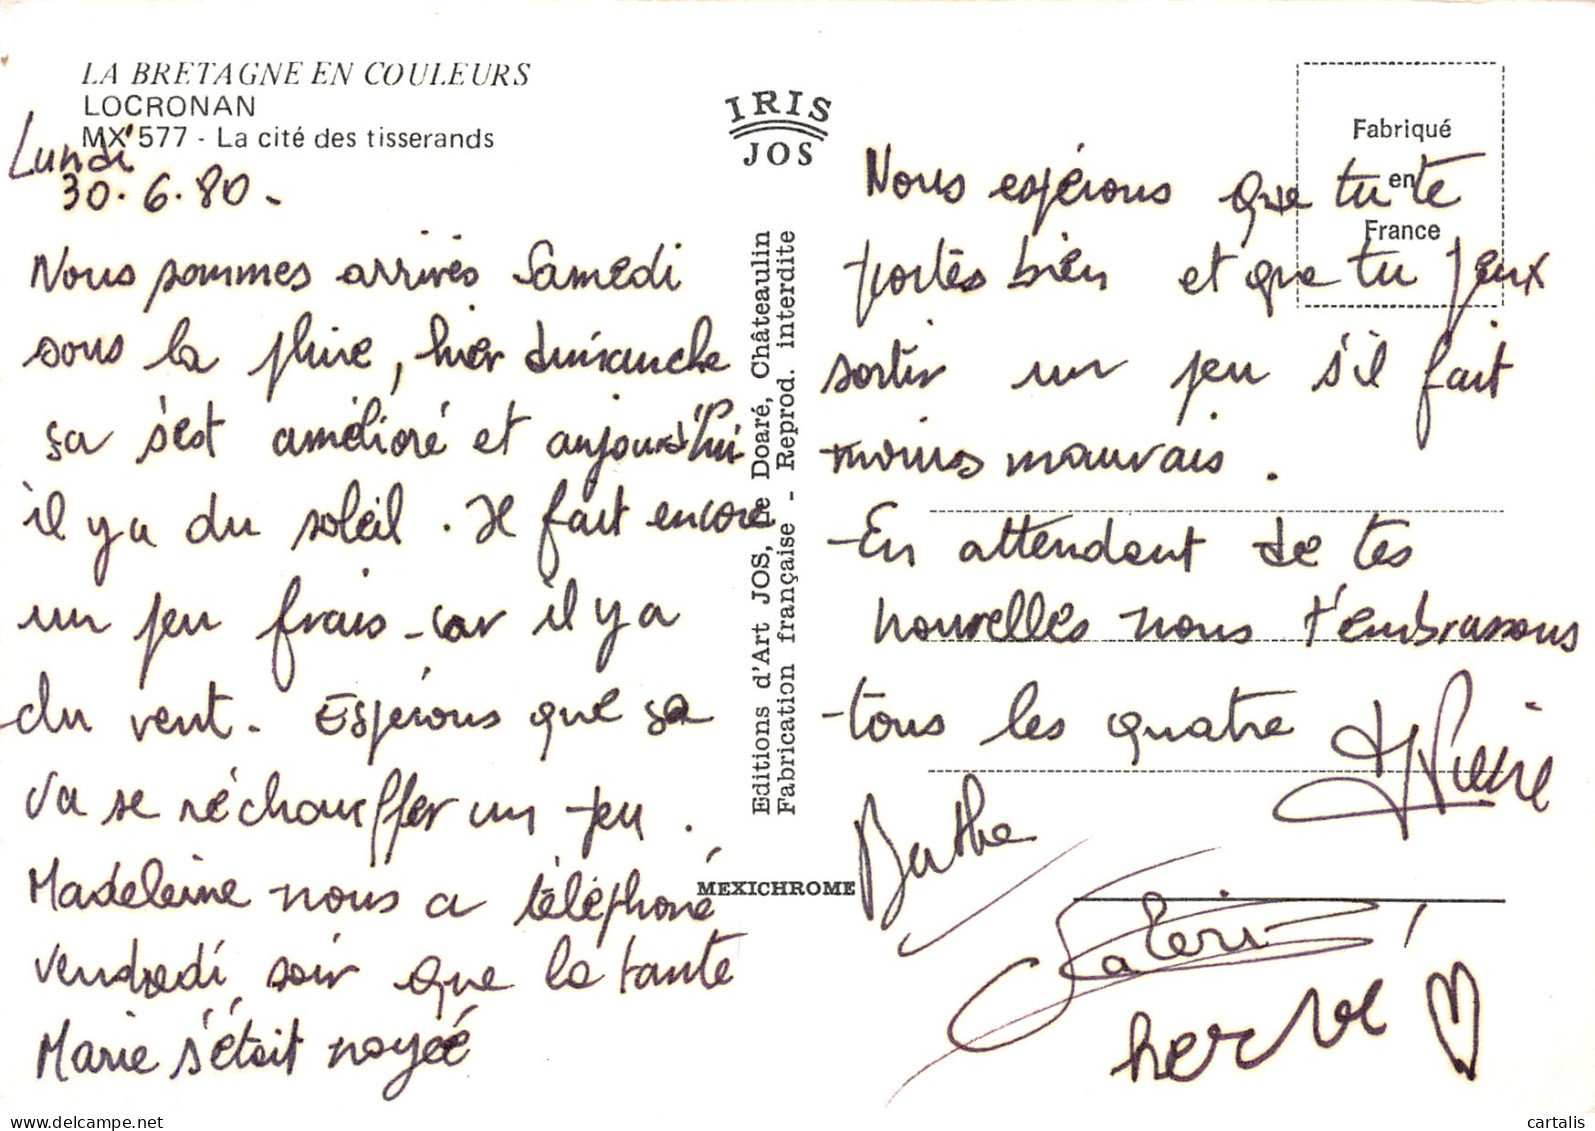 LA BRETAGNE EN COULEURS
LOCRONAN
MX 577 - La cité des tisserands
Lundi
30.6.80.
Nous sommes arrivés Samedi
sous la pluie, hier dimanche
sa s'est amélioré et aujourd'hui
il y a du soleil. Il fait encore
un peu frais - car il y a
du vent. Espérons que sa
va se réchauffer un peu.
Madeleine nous a téléphoné
vendredi soir que la tante
Marie s'était noyée
IRIS
JOS
Editions d'Art JOS, Le Doaré, Châteaulin
Fabrication française - Reprod. interdite
MEXICHROME
Fabriqué
en
France
Nous espérons que tu te
portes bien et que tu peux
sortir un peu s'il fait
moins mauvais.
En attendant de tes
nouvelles nous t'embrassons
tous les quatre
Pierre
Berthe
Katerin
herve
cartalis
www.delcampe.net